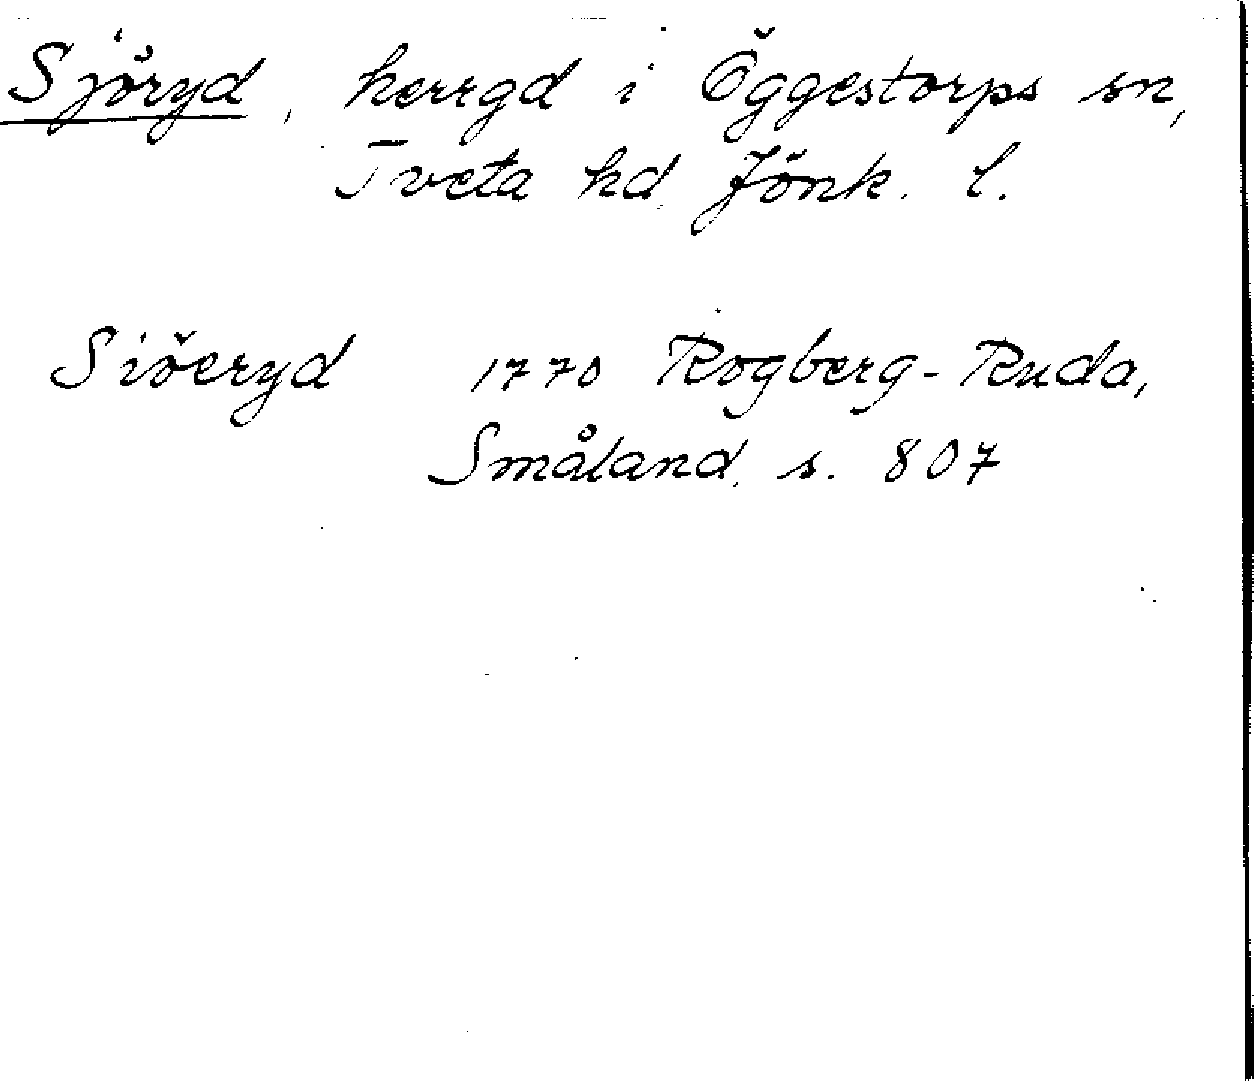 Sjöryd, herrgd i Öggestorps sn,
Tveta hd, Jönk. l.
Siöeryd 1770 Rogberg-Ruda,
Småland, s. 807